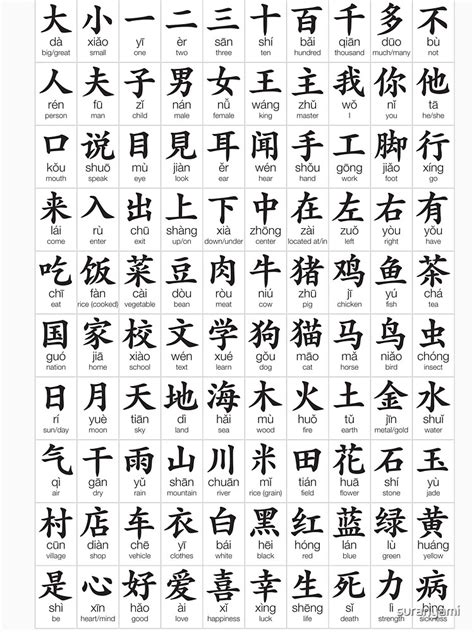 大 小 一 二 三 十 百 千 多 不
dà xiǎo yī èr sān shí bǎi qiān duō bù
big/great small one two three ten hundred thousand much/many not
人 夫 子 男 女 王 主 我 你 他
rén fū zǐ nán nǚ wáng zhǔ wǒ nǐ tā
person man child male female king master I you he/she
口 说 目 見 耳 闻 手 工 脚 行
kǒu shuō mù jiàn ěr wén shǒu gōng jiǎo xíng
mouth speak eye look ear hear hand work foot go
来 入 出 上 下 中 在 左 右 有
lái rù chū shàng xià zhōng zài zuǒ yòu yǒu
come enter exit up/on down/under center located at/in left right have
吃 饭 菜 豆 肉 牛 猪 鸡 鱼 茶
chī fàn cài dòu ròu niú zhū jī yú chá
eat rice (cooked) vegetable bean meat cow pig chicken fish tea
国 家 校 文 学 狗 猫 马 鸟 虫
guó jiā xiào wén xué gǒu māo mǎ niǎo chóng
nation home school text learn dog cat horse bird insect
日 月 天 地 海 木 火 土 金 水
rí yuè tiān dì hǎi mù huǒ tǔ jīn shuǐ
sun/day moon sky land sea wood fire earth metal/gold water
气 干 雨 山 川 米 田 花 石 玉
qì gān yǔ shān chuān mǐ tián huā shí yù
air dry rain mountain river rice (grain) field flower stone jade
村 店 车 衣 白 黑 红 蓝 绿 黄
cūn diàn chē yī bái hēi hóng lán lǜ huáng
village shop vehicle clothes white black red blue green yellow
是 心 好 爱 喜 幸 生 死 力 病
shì xīn hǎo ài xǐ xìng shēng sǐ lì bìng
be heart/mind good love happiness luck life death strength sickness
suranyami